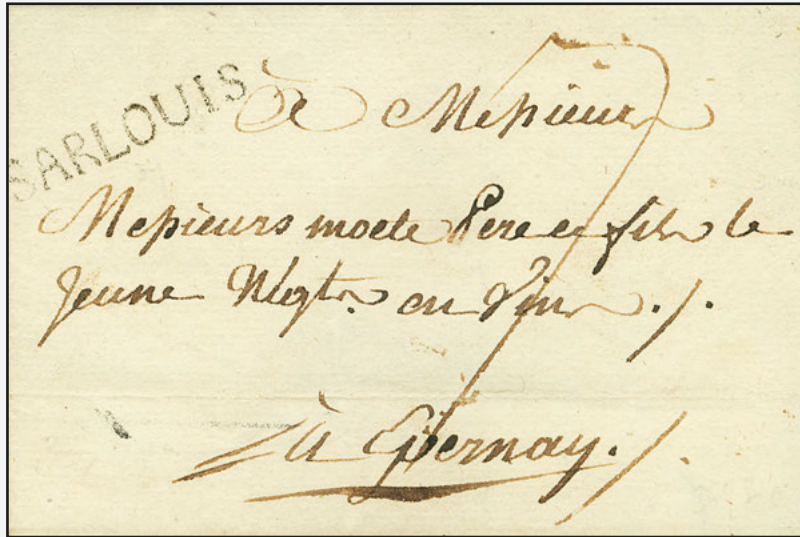 SARLOUIS
à Messieurs
Messieurs moete Pere et fils le
Jeune Négts. en Vins ./.
à Epernay ./.